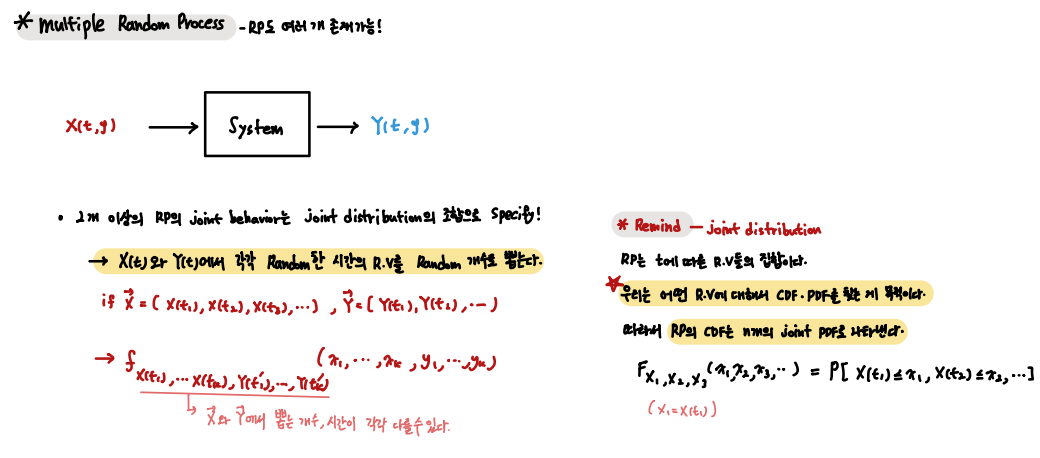 * Multiple Random Process - RP도 여러개 존재가능!
X(t,g) → System → Y(t,g)
• 2개 이상의 RP의 joint behavior는 joint distribution의 조합으로 Specify!
→ X(t)와 Y(t)에서 각각 Random한 시간의 R.V를 Random 개수로 뽑는다.
if X⃗ = ( X(t₁), X(t₂), X(t₃), ⋯ ) , Y⃗ = [ Y(t₁), Y(t₂), ⋯ )
→ f X(t₁), ⋯ X(tₖ), Y(t₁'), ⋯, Y(tₖ') (x₁, ⋯, xₖ, y₁, ⋯, yₖ)
↳ X⃗와 Y⃗에서 뽑는 개수, 시간이 각각 다를수있다.
* Remind - joint distribution
RP는 t에 따른 R.V들의 집합이다.
☆ 우리는 어떤 R.V에 대해서 CDF·PDF를 찾는 게 목적이다.
따라서 RP의 CDF는 n개의 joint PDF로 나타낸다.
F X₁,X₂,X₃ (x₁,x₂,x₃,··) = P[ X(t₁)≤x₁, X(t₂)≤x₂, ⋯]
(X₁=X(t₁))